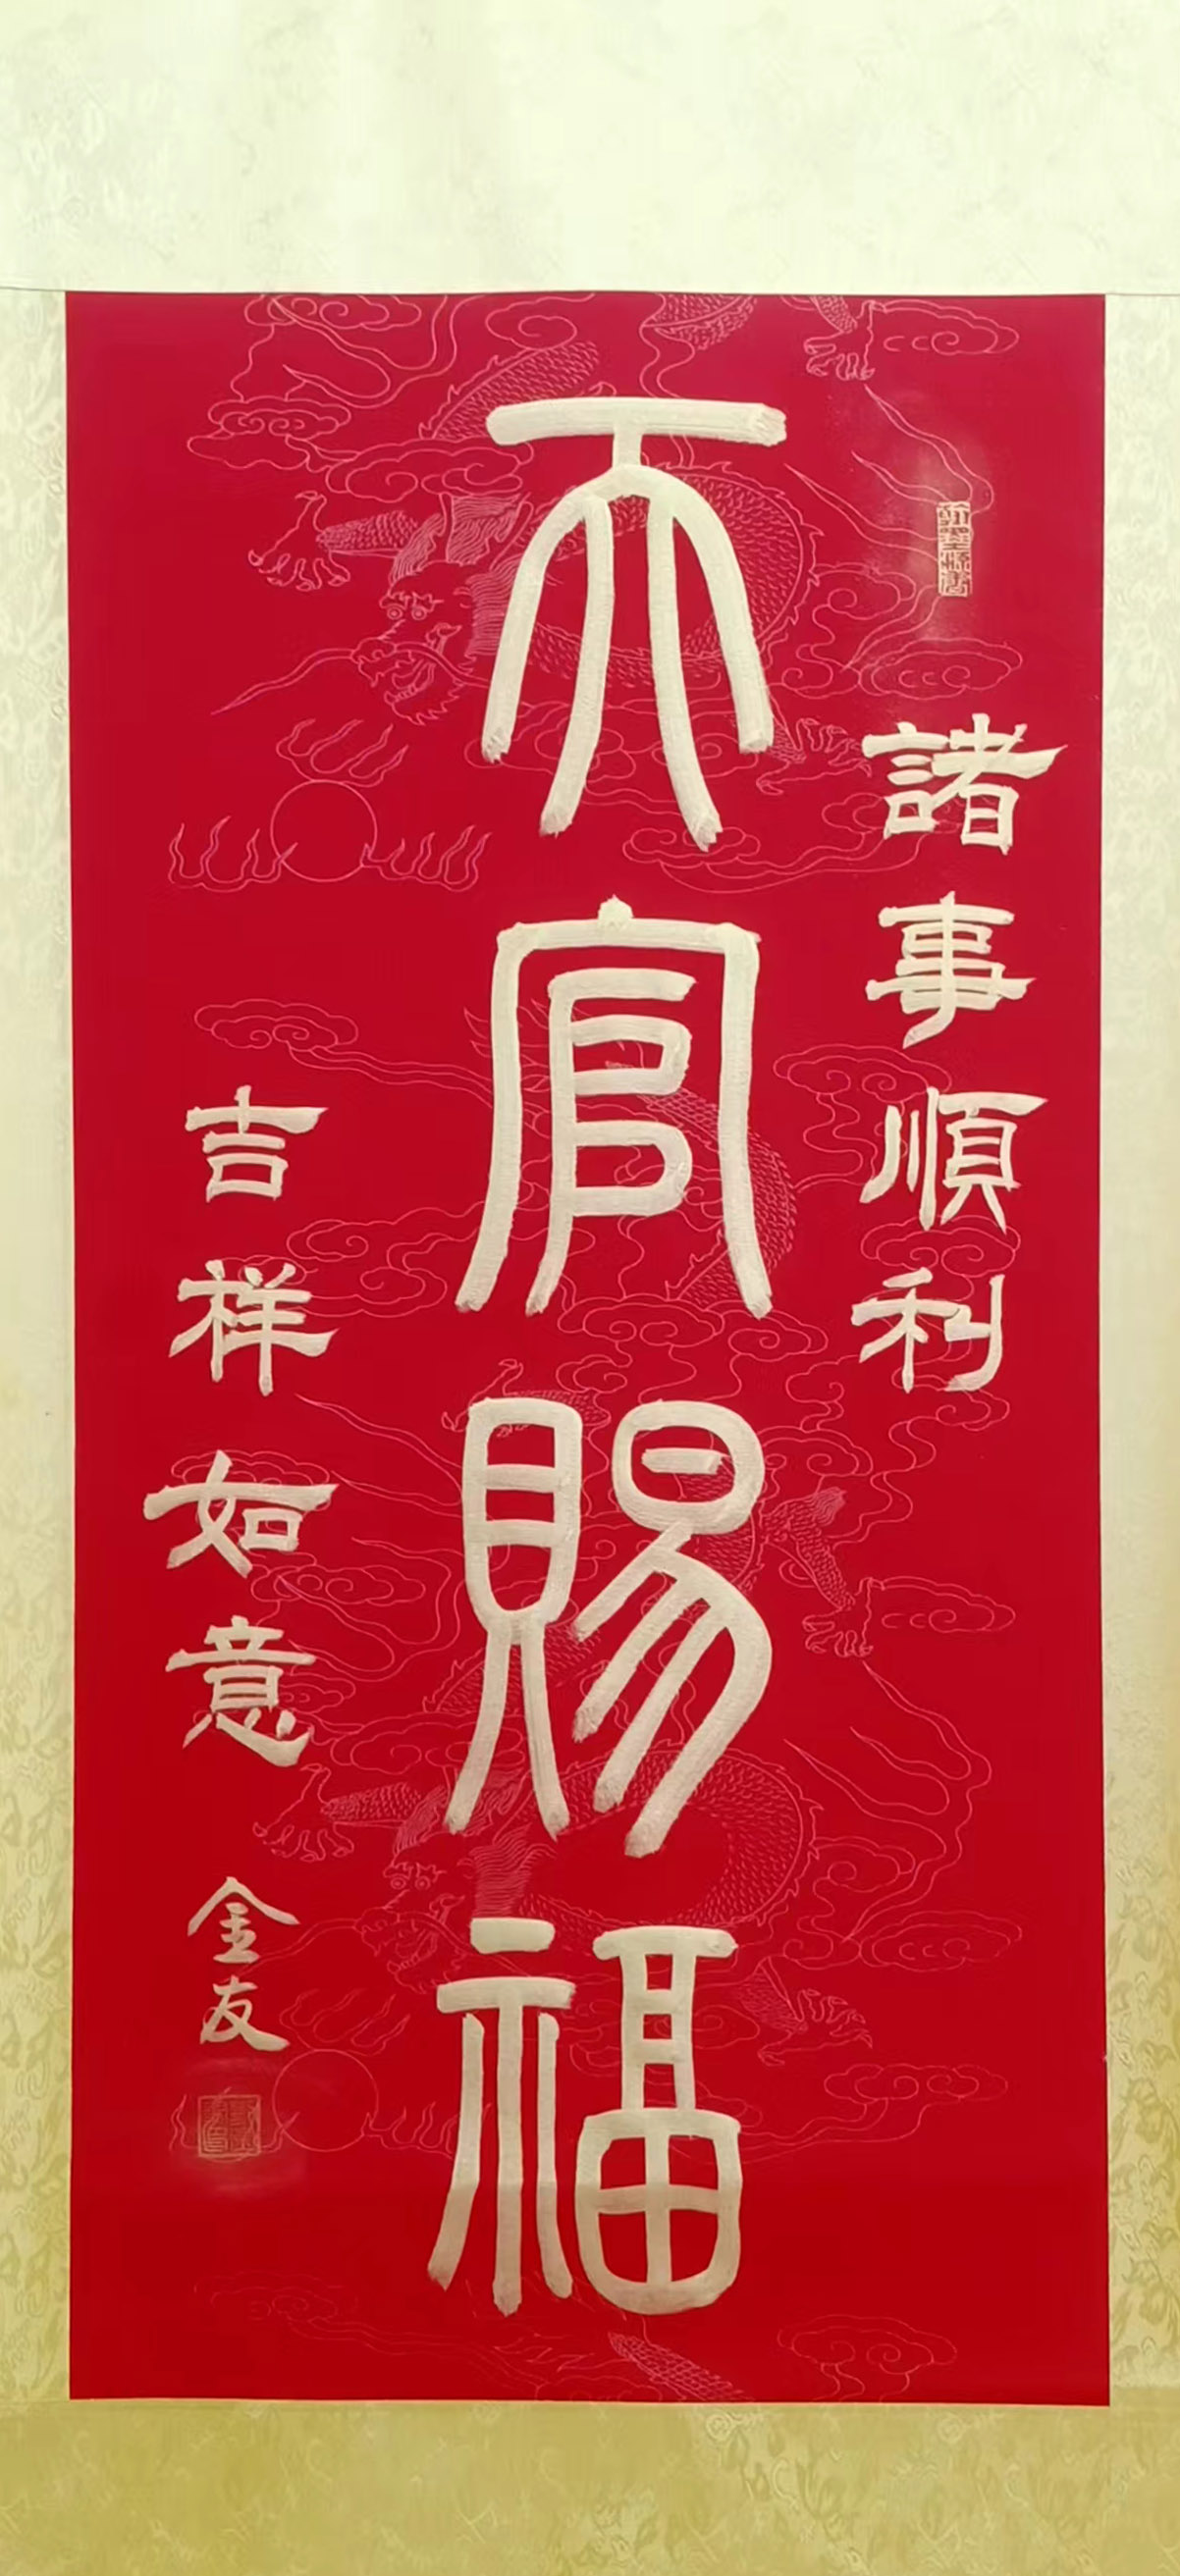 諸事順利
天官賜福
吉祥如意
金友